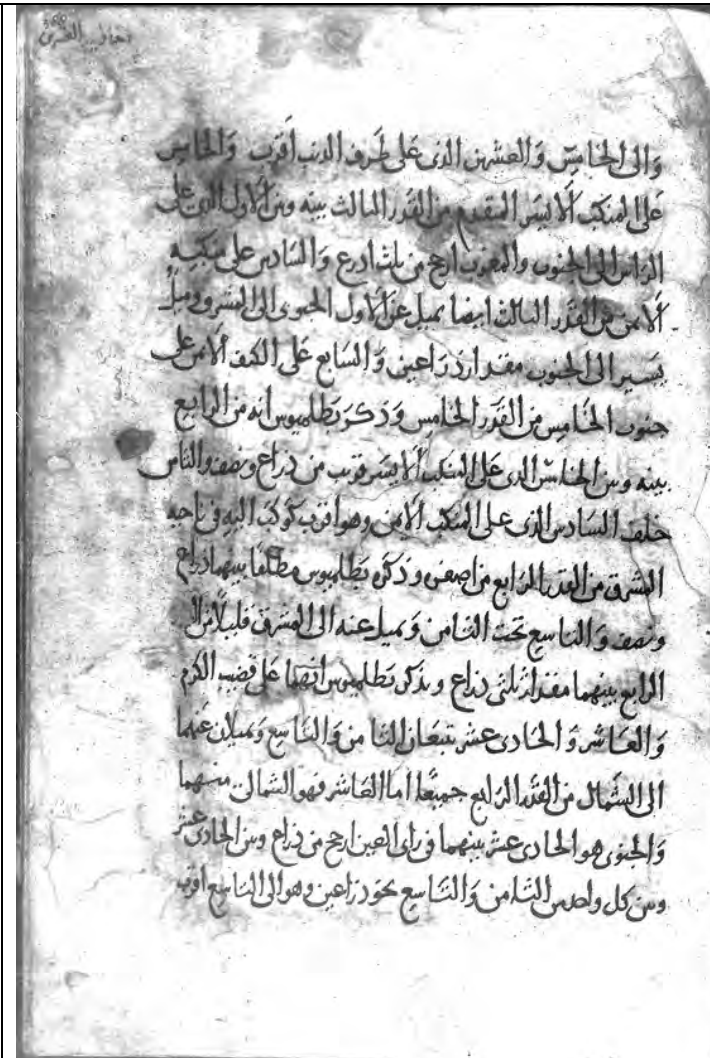 والى الخامس والعشرين الذى على طرف الذنب أقرب والخامس
على المنكب الايسر المتقدم من القدر الثالث بينه وبين الاول الذى على
الراس الى الجنوب والمغرب ارجح من ثلث ادرع والسادس على منكبه
الايمن من القدر الثالث ايضا يميل عن الاول الجنوبى الى المشرق وميلـ
يسير الى الجنوب مقدار ذراعين والسابع على الكتف الايمن على
جنوب الخامس من القدر الخامس وذكر بطلميوس انه من الرابع
بينه وبين الخامس الذى على المنكب الايسر قريب من ذراع ونصف والثامن
خلف السادس الذى على المنكب الايمن وهو اقرب كوكب اليه فى ناحية
المشرق من القدر الرابع من اصغره وذكره بطلميوس مطلقا بينهما ذراع
ونصف والتاسع تحت الثامن ويميل عنه الى المشرق قليلا من
الرابع بينهما مقدار ثلثى ذراع ويذكر بطلميوس انهما على قضيب الكرم
والعاشر والحادى عشر تتبعان الثامن والتاسع ويميلان عنهما
الى الشمال من القدر الرابع جميعا اما العاشر فهو الشمالى منهما
والجنوبى هو الحادى عشر بينهما فى راى العين ارجح من ذراع وبين الحادى عشر
وبين كل واحد من الثامن والتاسع نحو ذراعين وهو الى التاسع اقرب